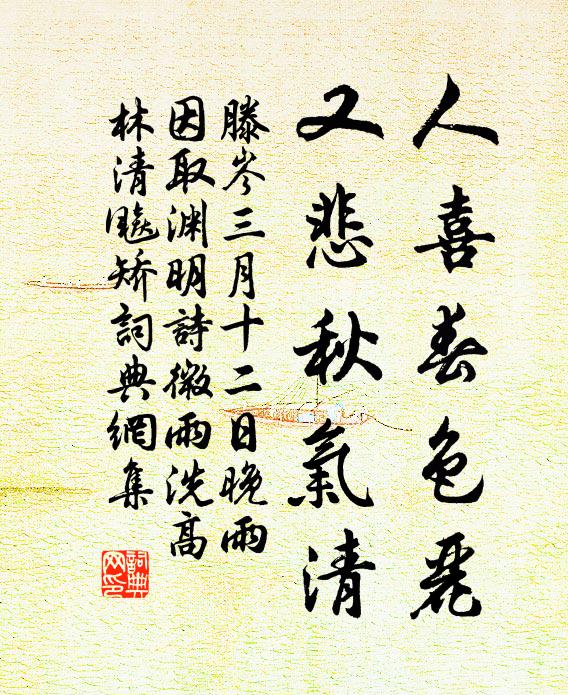 人喜春色麗
又悲秋氣清
滕岑三月十二日晚雨
因取渊明詩微雨洗高
林清飈矯詞典網集
詞典
网印